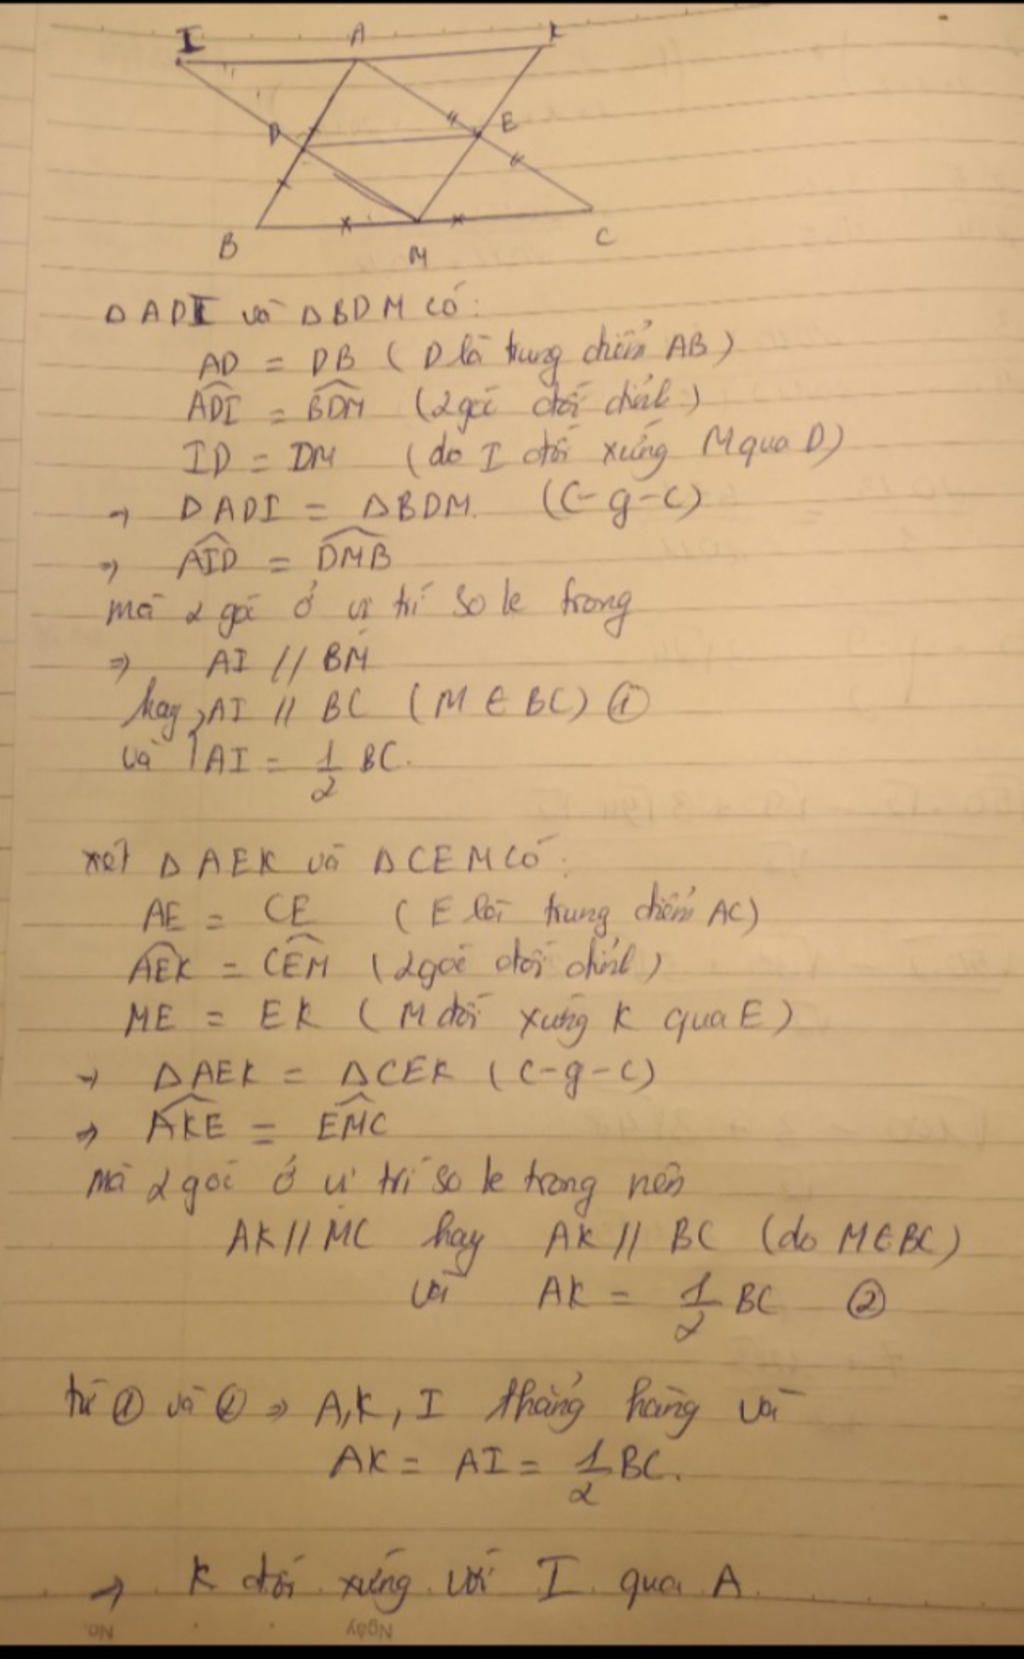 I A K
D E
B M C
Δ ADI và Δ BDM có:
AD = DB ( D là trung điểm AB )
ADI = BDM (2 góc đối đỉnh )
ID = DM ( do I đối xứng M qua D)
→ Δ ADI = Δ BDM. (C-g-C)
⇒ AID = DMB
mà 2 góc ở vị trí so le trong
⇒ AI // BM
hay AI // BC ( M ∈ BC ) ①
và AI = 1/2 BC.
xét Δ AEK và Δ CEM có:
AE = CE ( E là trung điểm AC)
AEK = CEM ( 2 góc đối đỉnh )
ME = EK ( M đối xứng K qua E )
→ Δ AEK = Δ CEK ( C-g-C)
⇒ AKE = EMC
mà 2 góc ở vị trí so le trong nên
AK // MC hay AK // BC (do M∈BC)
và AK = 1/2 BC ②
từ ① và ② ⇒ A, K, I thẳng hàng và
AK = AI = 1/2 BC.
→ K đối xứng với I qua A.
No. Ngày